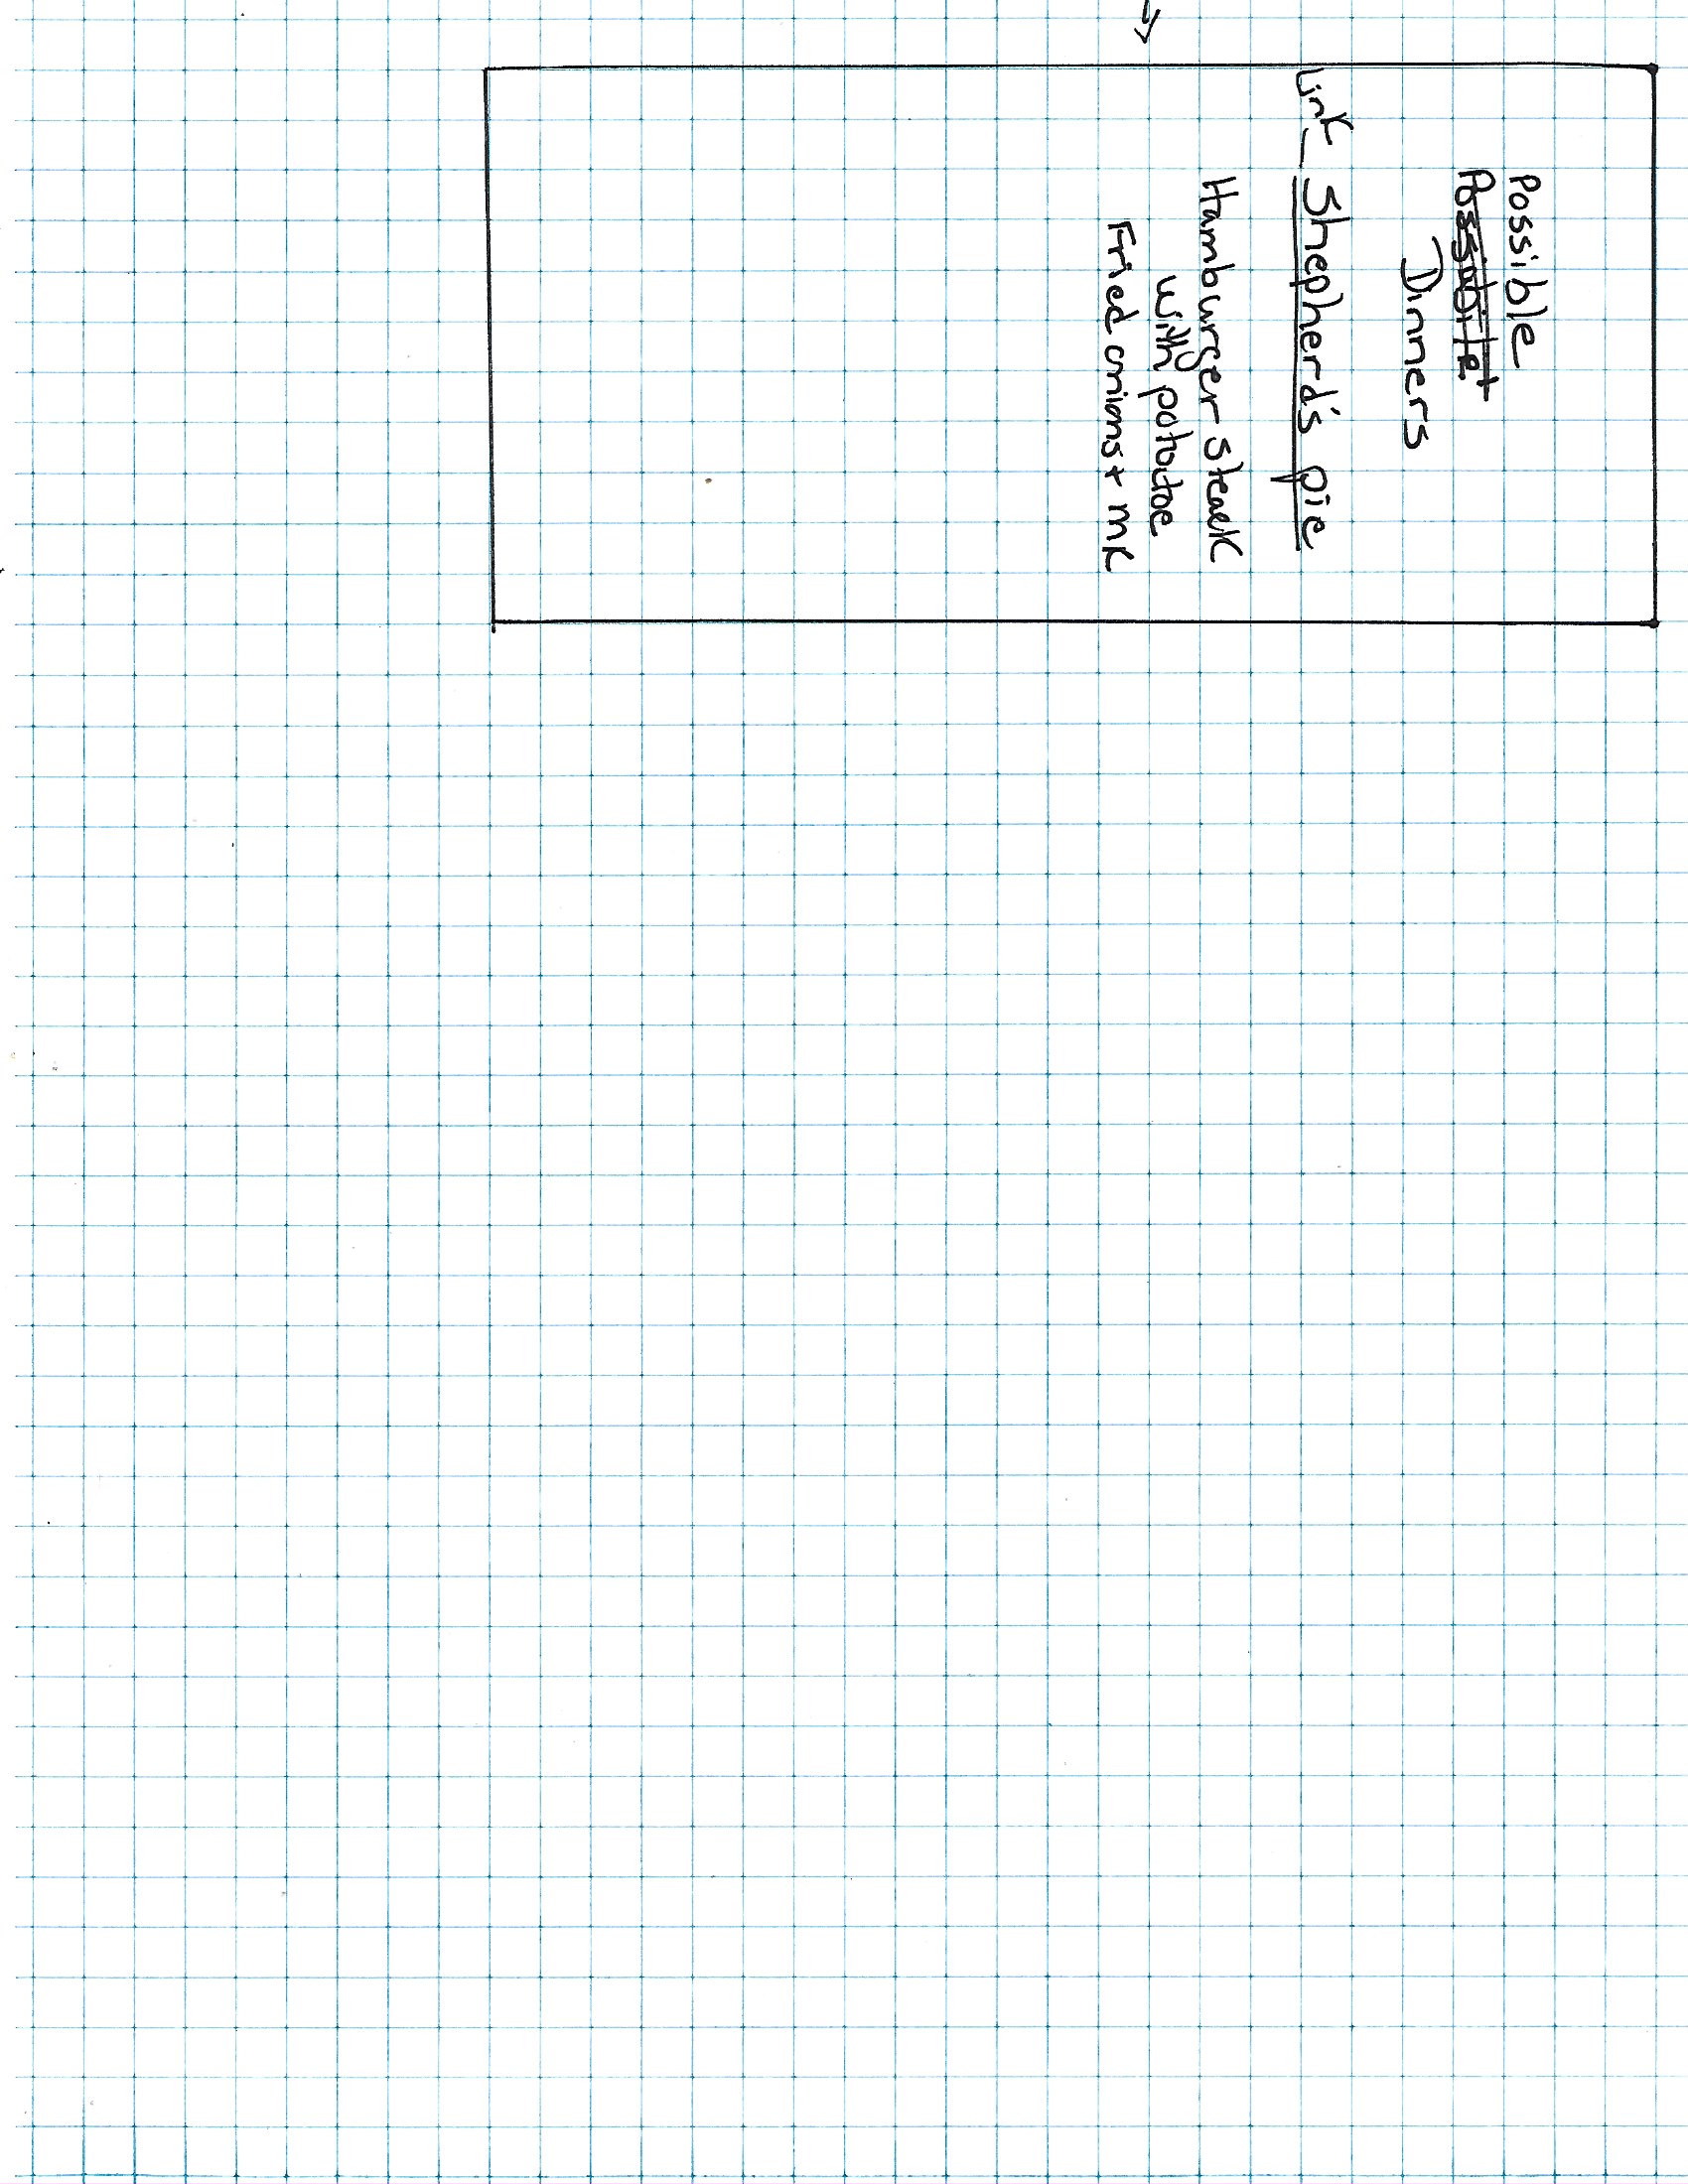 Possible
Dinners
Link Shepherd's pie
Hamburger steak
with potatoe
Fried onions + mK